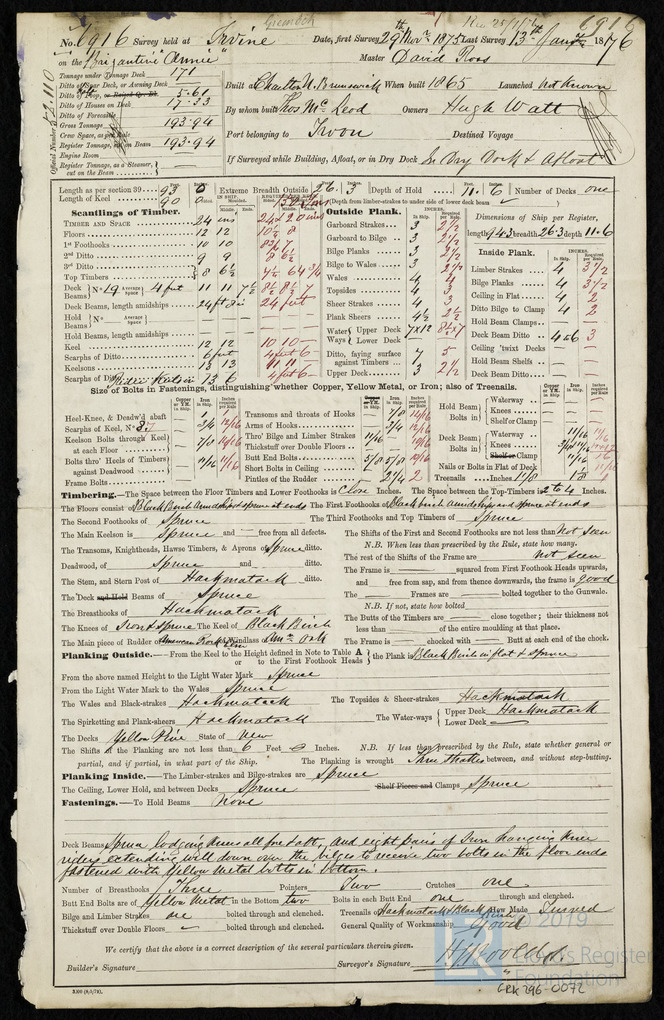 6916
No. 6916 Survey held at Irvine Date, first Survey 29th Novr 1875 Last Survey 13th Jany 1876
on the Brigantine "Annie" Master David Ross
Tonnage under Tonnage Deck 171
Ditto of Spar Deck, or Awning Deck
Ditto of Poop, or Raised Qr. Dk. 5.61
Ditto of Houses on Deck 17.33
Ditto of Forecastle
Gross Tonnage 193.94
Crew Space, as per Rule
Register Tonnage, cut on Beam 193.94
Engine Room
Register Tonnage, as a Steamer, cut on the Beam
Official Number
Built at Charlton N. Brunswick When built 1865 Launched Not Known
By whom built Thos. McLeod Owners Hugh Watt
Port belonging to Irvine Destined Voyage
If Surveyed while Building, Afloat, or in Dry Dock In Dry Dock & Afloat
Length as per section 39 93 0 Extreme Breadth Outside 26.3 Depth of Hold 11.6 Number of Decks one
Length of Keel 90 0 Depth from limber-strakes to under side of lower deck beam
Scantlings of Timber.
Timber and Space 24 ins
Floors 12 12 10½ 8
1st Foothooks 10 10
2nd Ditto 9 9
3rd Ditto
Top Timbers 8 6½
Deck Beams No. 19 Average Space 4 feet 11 11 7½ 8½ 8½ 7
Deck Beams, length amidships 24 feet 24 feet
Hold Beams No. Average Space
Hold Beams, length amidships
Keel 12 12 10 10
Scarphs of Ditto 6 feet 4 feet 6
Keelsons 13 13 11 11
Scarphs of Do. Rider Keelson 13 6 4 feet 6
Outside Plank.
Garboard Strakes 3 2½
Garboard to Bilge 3 2½
Bilge Planks 3 2½
Bilge to Wales 3 2½
Wales 4
Topsides 4 3
Sheer Strakes 4 3
Plank Sheers 4½ 2½
Water Ways Upper Deck 7x12 8½x7
Lower Deck
Ditto, faying surface against Timbers 7 5
Upper Deck 3 2½
Dimensions of Ship per Register,
length 94.3 breadth 26.3 depth 11.6
Inside Plank.
Limber Strakes 4 3½
Bilge Planks 4 3½
Ceiling in Flat 4 2
Ditto Bilge to Clamp 4 2
Hold Beam Clamps
Deck Beam Ditto 4 to 6 3
Ceiling 'twixt Decks
Hold Beam Shelfs
Deck Beam Ditto
Size of Bolts in Fastenings, distinguishing whether Copper, Yellow Metal, or Iron; also of Treenails.
Heel-Knee, & Deadw'd abaft 1
Scarphs of Keel, No. 3/4 12/16
Keelson Bolts through Keel at each Floor
Bolts thro' Heels of Timbers against Deadwood
Frame Bolts
Transoms and throats of Hooks 7/8
Arms of Hooks 3/4
Thro' Bilge and Limber Strakes 11/16
Thickstuff over Double Floors
Butt End Bolts 5/8 5/8 10/16
Short Bolts in Ceiling
Pintles of the Rudder 2¼ 2
Hold Beam Bolts in Waterway
Knees
Shelf or Clamp
Deck Beam Bolts in Waterway 11/16
Knees
Shelf or Clamp
Nails or Bolts in Flat of Deck
Treenails Inches 1 1/8
Timbering.—The Space between the Floor Timbers and Lower Foothooks is Close Inches. The Space between the Top-Timbers is 2 to 4 Inches.
The Floors consist of Black Birch amidships & spruce at ends The First Foothooks of Black birch amidships and spruce at ends
The Second Foothooks of Spruce The Third Foothooks and Top Timbers of Spruce
The Main Keelson is Spruce and free from all defects. The Shifts of the First and Second Foothooks are not less than Not seen
N.B. When less than prescribed by the Rule, state how many.
The Transoms, Knightheads, Hawse Timbers, & Aprons of Spruce ditto. The rest of the Shifts of the Frame are Not seen
Deadwood, of Spruce and ditto. The Frame is squared from First Foothook Heads upwards,
The Stem, and Stern Post of Hackmatack ditto. and free from sap, and from thence downwards, the frame is good
The Deck and Hold Beams of Spruce The Frames bolted together to the Gunwale.
The Breasthooks of Hackmatack N.B. If not, state how bolted
The Knees of Iron & Spruce The Keel of Black Birch The Butts of the Timbers are close together; their thickness not less than of the entire moulding at that place.
The Main piece of Rudder American Rock Elm Windlass of Amn. Oak The Frame is chocked with Butt at each end of the chock.
Planking Outside.—From the Keel to the Height defined in Note to Table A or to the First Foothook Heads the Plank is Black Birch in flat & spruce
From the above named Height to the Light Water Mark Spruce
From the Light Water Mark to the Wales Spruce
The Wales and Black-strakes Hackmatack The Topsides & Sheer-strakes Hackmatack
The Spirketting and Plank-sheers Hackmatack The Water-ways Upper Deck Hackmatack
Lower Deck
The Decks Yellow Pine State of New
The Shifts of the Planking are not less than 6 Feet 0 Inches. N.B. If less than prescribed by the Rule, state whether general or
partial, and if partial, in what part of the Ship. The Planking is wrought Three strakes between, and without step-butting.
Planking Inside.—The Limber-strakes and Bilge-strakes are Spruce
The Ceiling, Lower Hold, and between Decks Spruce Shelf Pieces and Clamps Spruce
Fastenings.—To Hold Beams None
Deck Beams Spruce lodging knees all fore & aft, and eight pairs of Iron hanging knee
riders extending well down over the bilges to receive two bolts in the floor ends
fastened with Yellow Metal bolts in bottom.
Number of Breasthooks Three Pointers Two Crutches one
Butt End Bolts are of Yellow Metal in the Bottom two Bolts in each Butt End one through and clenched.
Bilge and Limber Strakes one bolted through and clenched. Treenails of Hackmatack & Black Birch How Made Turned
Thickstuff over Double Floors bolted through and clenched. General Quality of Workmanship Good
We certify that the above is a correct description of the several particulars therein given.
Builder's Signature Surveyor's Signature
© 2019
Lloyd's Register
Foundation
GRK 296-0072